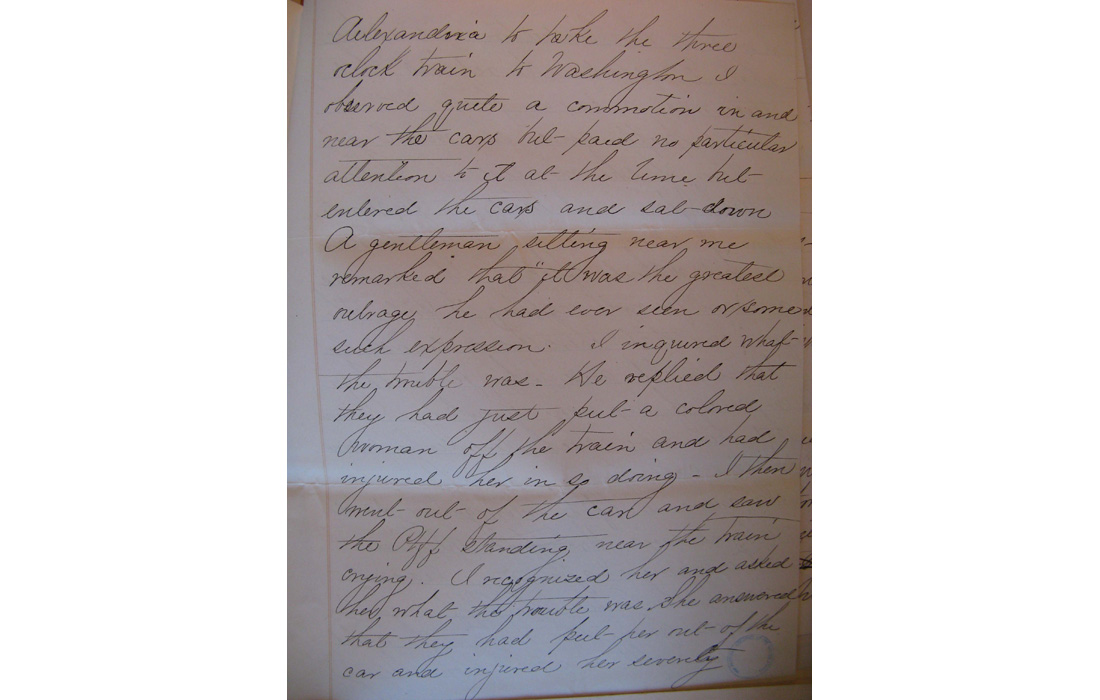 Alexandria to take the three
oclock train to Washington I
observed quite a commotion in and
near the cars but paid no particular
attention to it at the time but
entered the cars and sat down
A gentleman sitting near me
remarked that "it was the greatest
outrage he had ever seen or some
such expression. I inquired what
the trouble was - He replied that
they had just put a colored
woman off the train and had
injured her in so doing - I then
went out of the car and saw
the Plff standing near the train
crying. I recognized her and asked
her what the trouble was She answered
that they had put her out of the
car and injured her severely